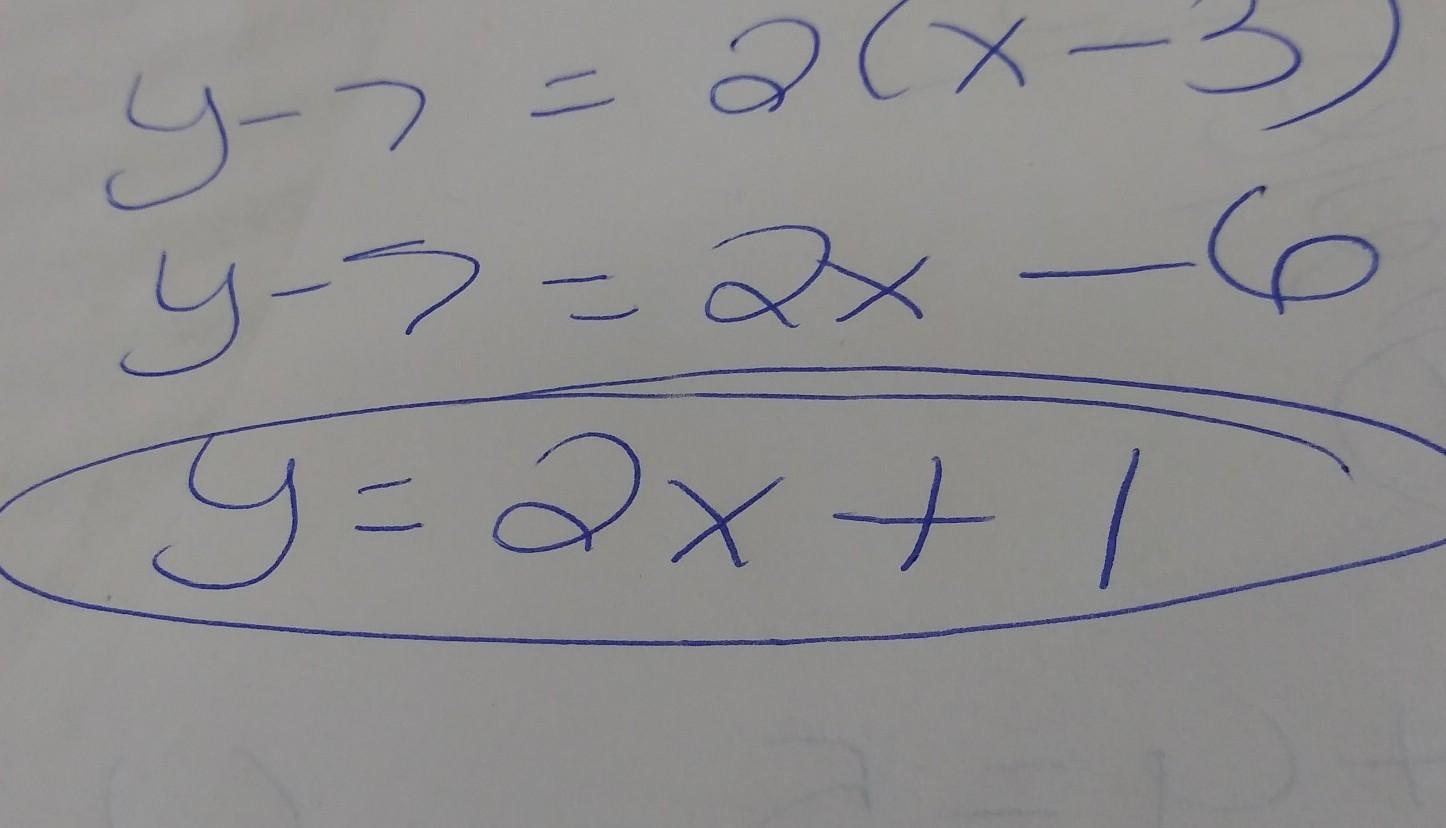 y-7 = 2(x-3)
y-7 = 2x - 6
y = 2x + 1